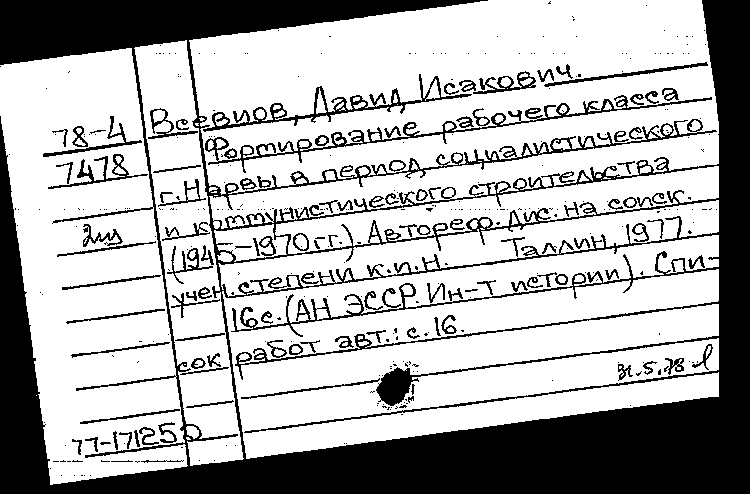 78-4
7478
2 экз
Всевиов, Давид Исакович.
Формирование рабочего класса
г. Нарвы в период социалистического
и коммунистического строительства
(1945-1970 гг.). Автореф. дис. на соиск.
учен. степени к.и.н. Таллин, 1977.
16с. (АН ЭССР. Ин-т истории). Спи-
сок работ авт.: с. 16.
31.5.78
77-171250